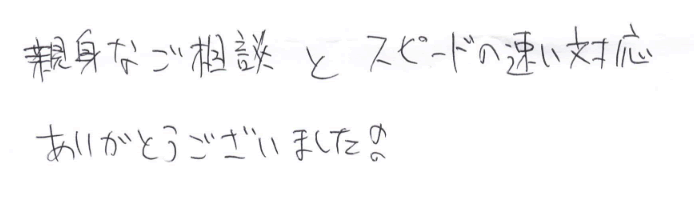 親身なご相談とスピードの速い対応
ありがとうございました!!